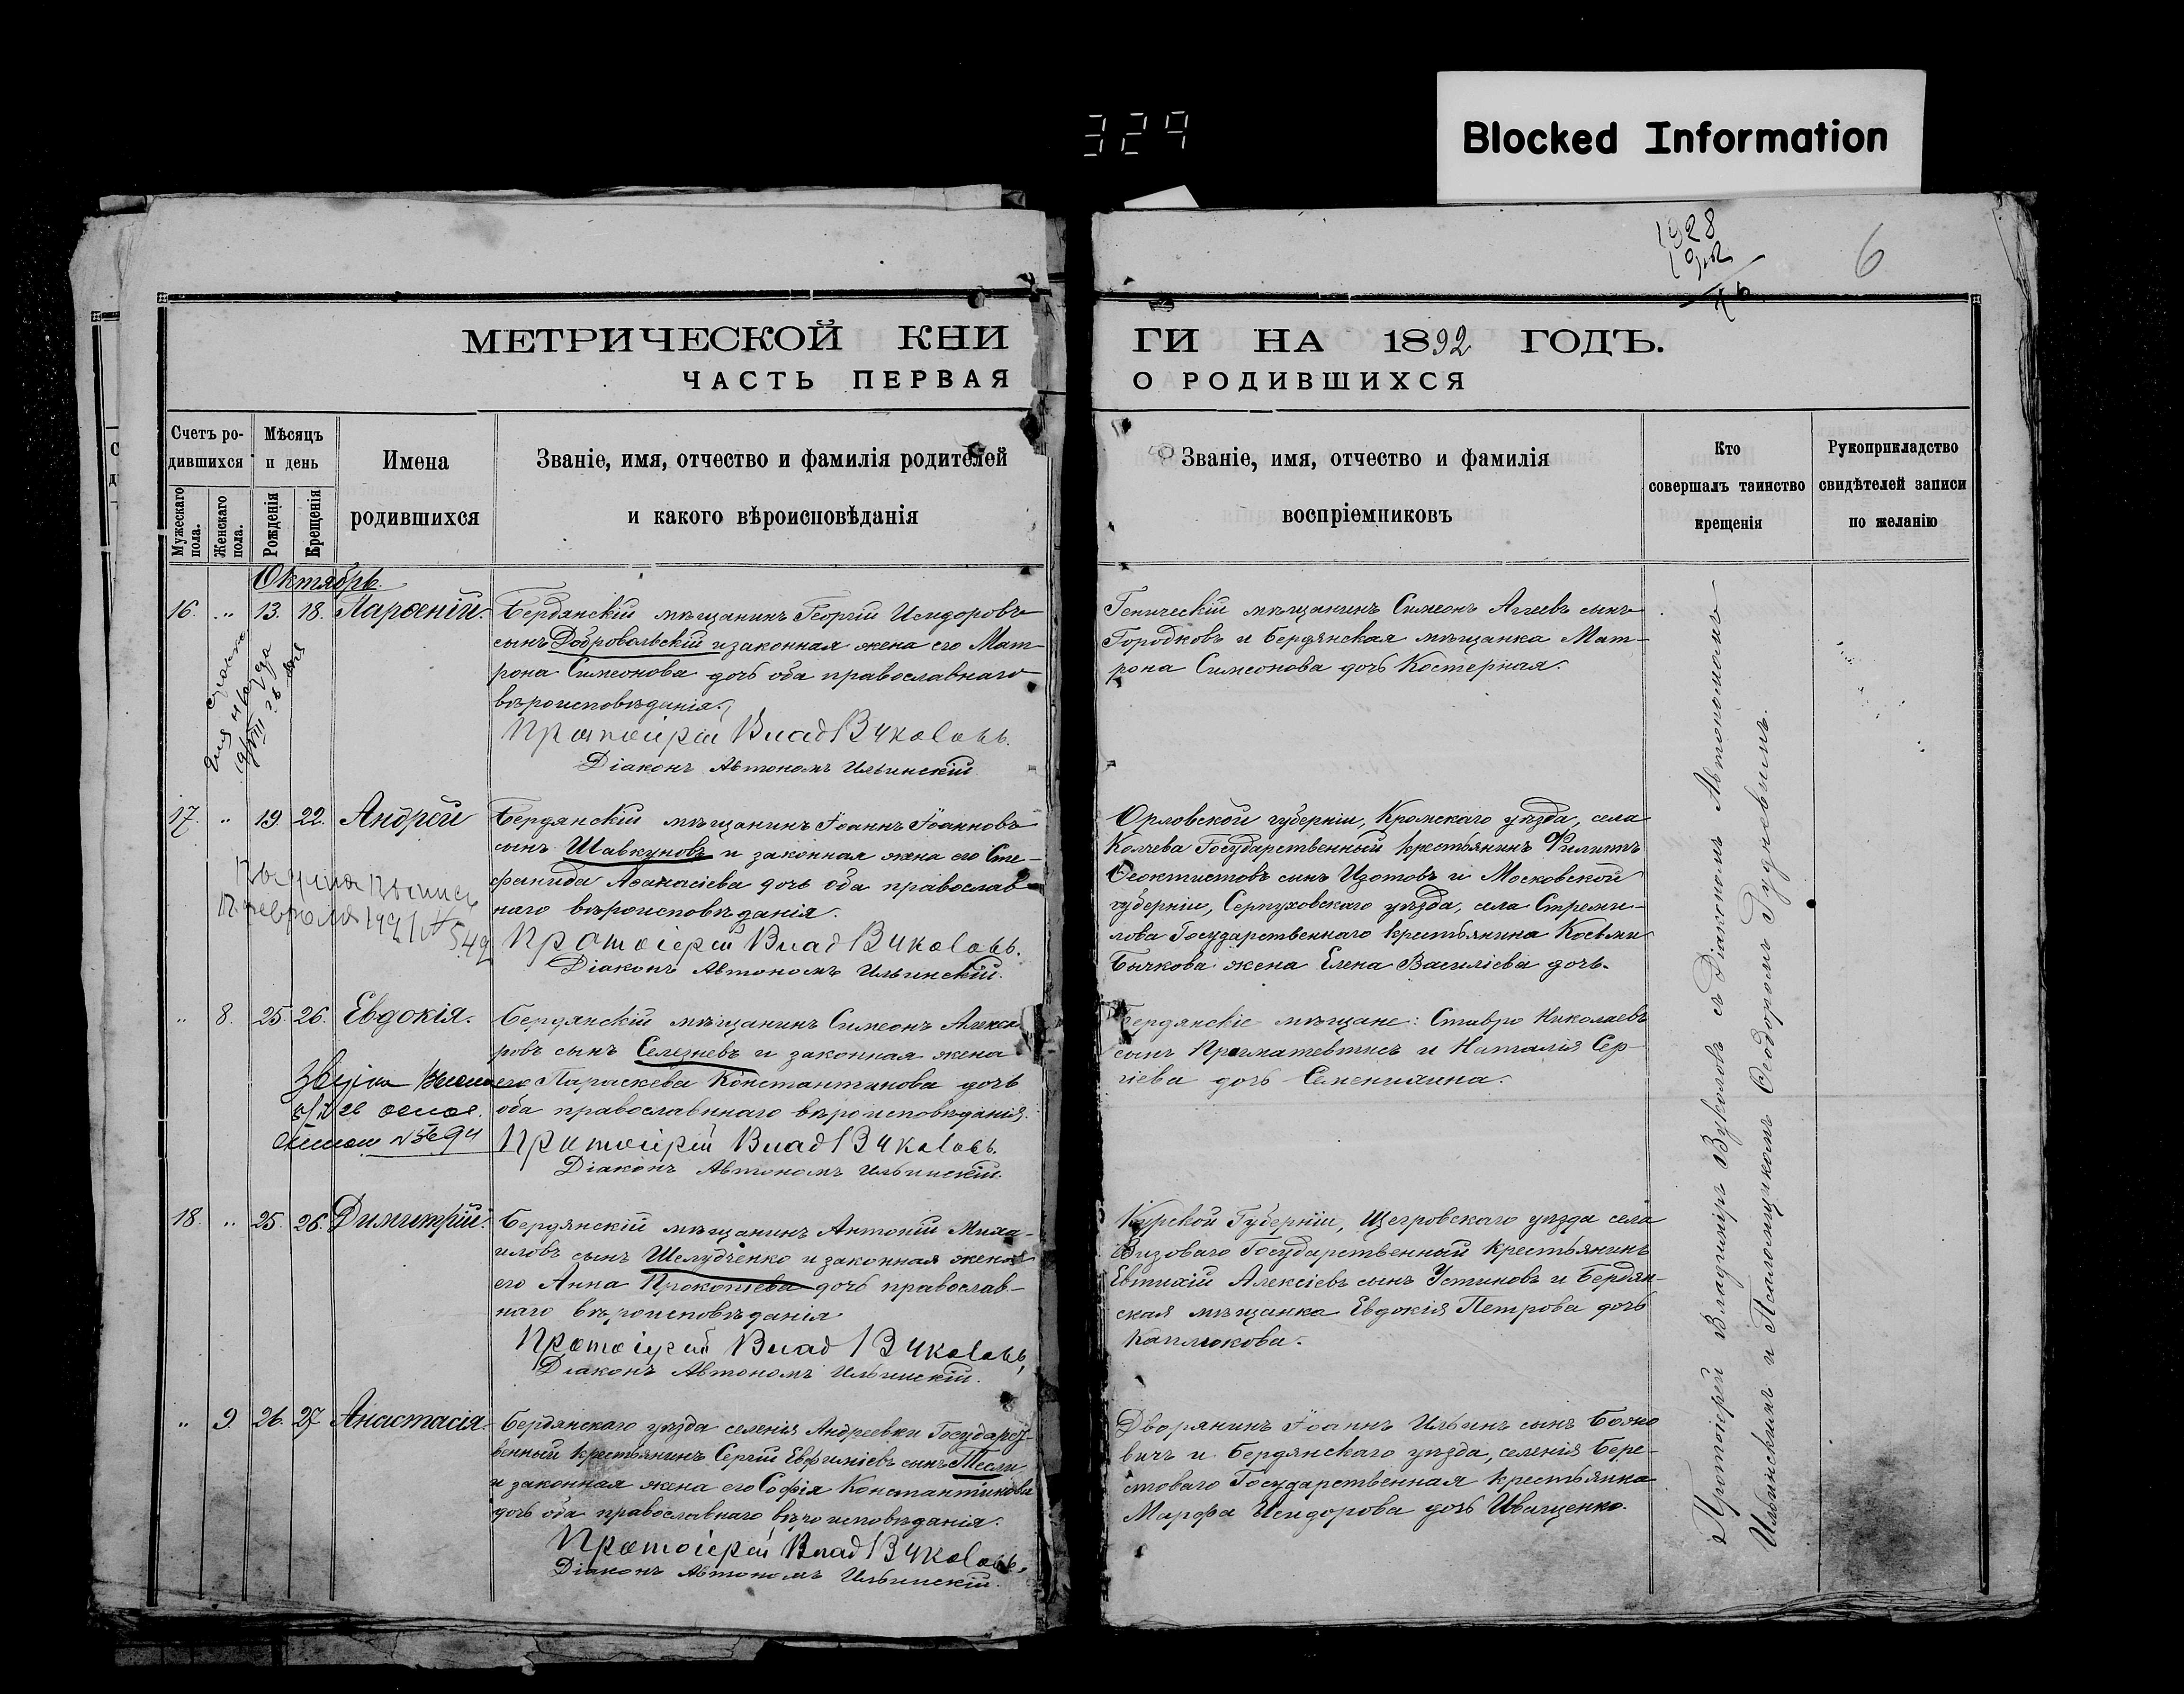 329
Blocked Information
1928
6
МЕТРИЧЕСКОЙ КНИ
ГИ НА 1892 ГОДЪ.
ЧАСТЬ ПЕРВАЯ
О РОДИВШИХСЯ
Счетъ ро-
дившихся
Мужескаго пола.
Женскаго пола.
Мѣсяцъ
и день
Рожденія
Крещенія
Имена
родившихся
Званіе, имя, отчество и фамилія родителей
и какого вѣроисповѣданія
Званіе, имя, отчество и фамилія
воспріемниковъ
Кто
совершалъ таинство
крещенія
Рукоприкладство
свидѣтелей записи
по желанію
Октябрь.
16. " 13. 18. Парѳеній.
Бердянскій мѣщанинъ Георгій Исидоровъ
сынъ Добровольскій и законная жена его Мат-
рона Симеонова дочь оба православнаго
вѣроисповѣданія.
Протоіерей Влад Вуколовъ.
Діаконъ Автономъ Ильинскій
Геническій мѣщанинъ Симеонъ Аггеевъ сынъ
Городковъ и Бердянская мѣщанка Мат-
рона Симеонова дочь Костерная.
17. " 19. 22. Андрей
Бердянскій мѣщанинъ Іоаннъ Іоанновъ
сынъ Шавкуновъ и законная жена его Сте-
фанида Аѳанасіева дочь оба православ-
наго вѣроисповѣданія.
Протоіерей Влад Вуколовъ.
Діаконъ Автономъ Ильинскій.
549
Орловской губерніи, Кромскаго уѣзда, села
Колчева Государственный крестьянинъ Филиппъ
Ѳеоктистовъ сынъ Изотовъ и Московской
губерніи, Серпуховскаго уѣзда, села Стреми-
лова Государственнаго крестьянина Косьмы
Бычкова жена Елена Василіева дочь.
" 8. 25. 26. Евдокія.
Бердянскій мѣщанинъ Симеонъ
ровъ сынъ Селезневъ и законная жена
его Параскева Константинова дочь
оба православннаго вѣроисповѣданія.
Протоіерей Влад Вуколовъ.
Діаконъ Автономъ Ильинскій.
Бердянскіе мѣщане: Ставро Николаевъ
сынъ и Наталія Сер-
гіева дочь
18. " 25. 26. Димитрій.
Бердянскій мѣщанинъ Антоній Миха-
иловъ сынъ Шелудченко и законная жена
его Анна Прокопіева дочь православ-
наго вѣроисповѣданія
Протоіерей Влад Вуколовъ,
Діаконъ Автономъ Ильинскій.
Курской Губерніи, Щегровскаго уѣзда села
Государственный крестьянинъ
Евтихій Алексіевъ сынъ Устиновъ и Бердян-
ская мѣщанка Евдокія Петрова дочь
Каплюкова.
" 9 26. 27 Анастасія.
Бердянскаго уѣзда селенія Андреевки Государст-
венный крестьянинъ Сергій Евфиміевъ сынъ Тесля
и законная жена его Софія Константинова
дочь оба православнаго вѣроисповѣданія.
Протоіерей Влад Вуколовъ.
Діаконъ Автономъ Ильинскій.
Дворянинъ Іоаннъ Ильинъ сынъ Божо
вичъ и Бердянскаго уѣзда, селенія Бере-
стоваго Государственная крестьянка
Марфа Исидорова дочь Иващенко.
Протоіерей Владиміръ Вуколовъ съ Діакономъ Автономомъ
Ильинскимъ и Псаломщикомъ Ѳеодоромъ Рудневымъ.